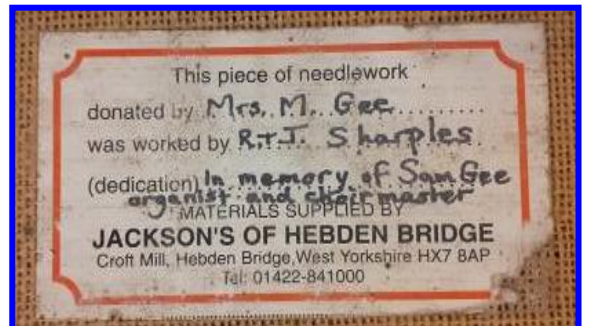 This piece of needlework
donated by Mrs. M. Gee
was worked by R.+J. Sharples
(dedication) In memory of Sam Gee
organist and choirmaster
MATERIALS SUPPLIED BY
JACKSON'S OF HEBDEN BRIDGE
Croft Mill, Hebden Bridge, West Yorkshire HX7 8AP
Tel: 01422-841000